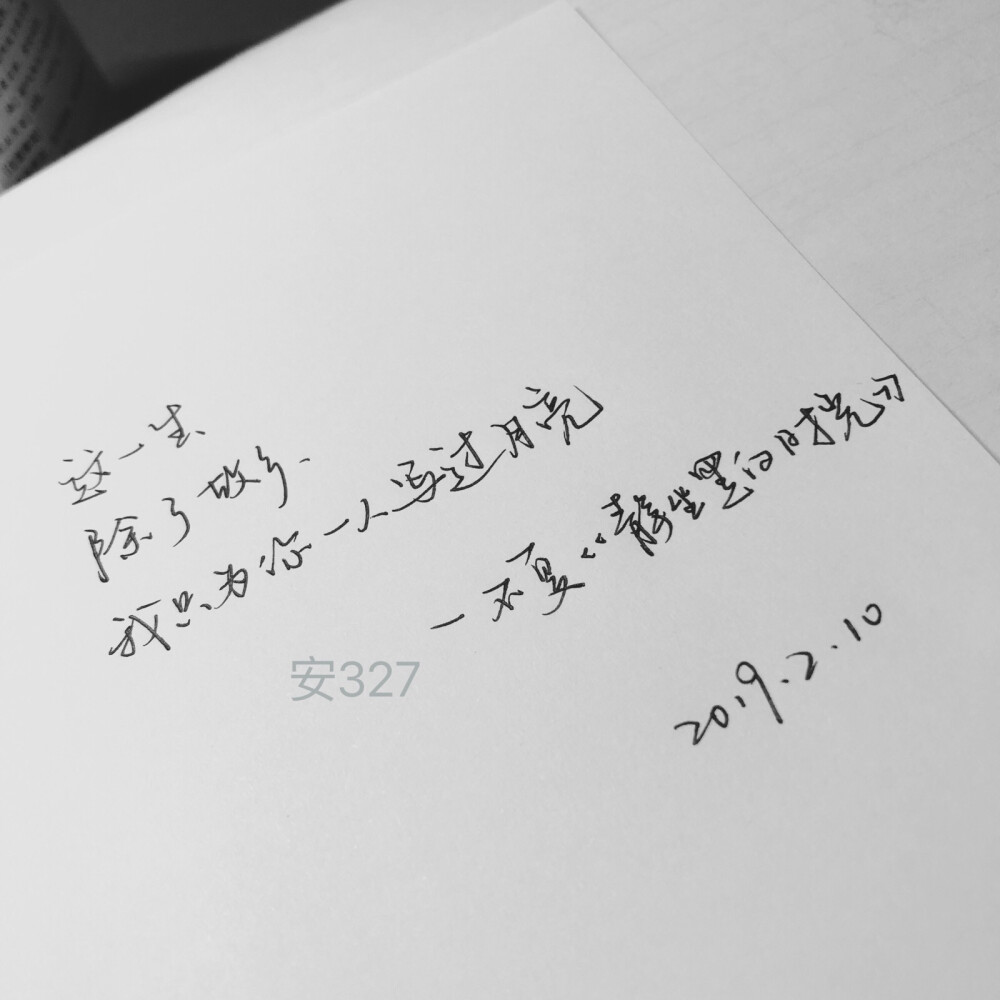 这一生
除了故乡.
我只为你一人写过月亮
一不夏《静坐黑的时
安327
2019.2.10